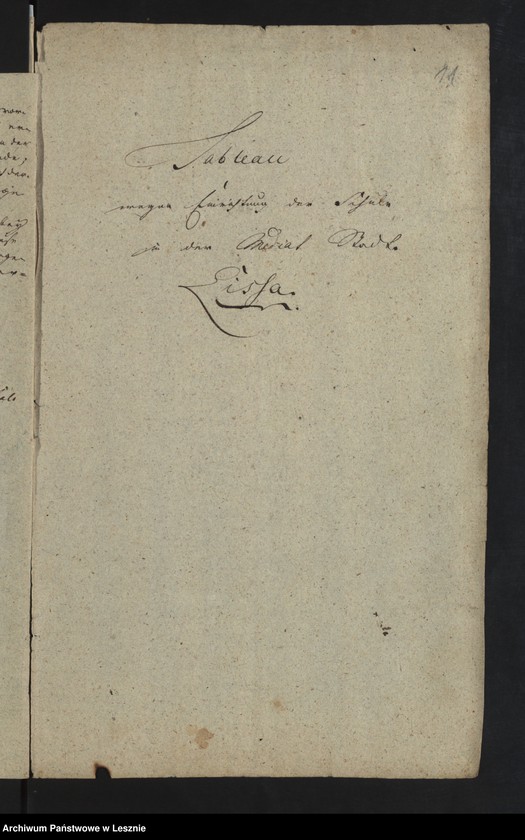 11
Tableau
wegen Einrichtung der Schule
in der Mediat Stadt
Lissa.
Archiwum Państwowe w Lesznie